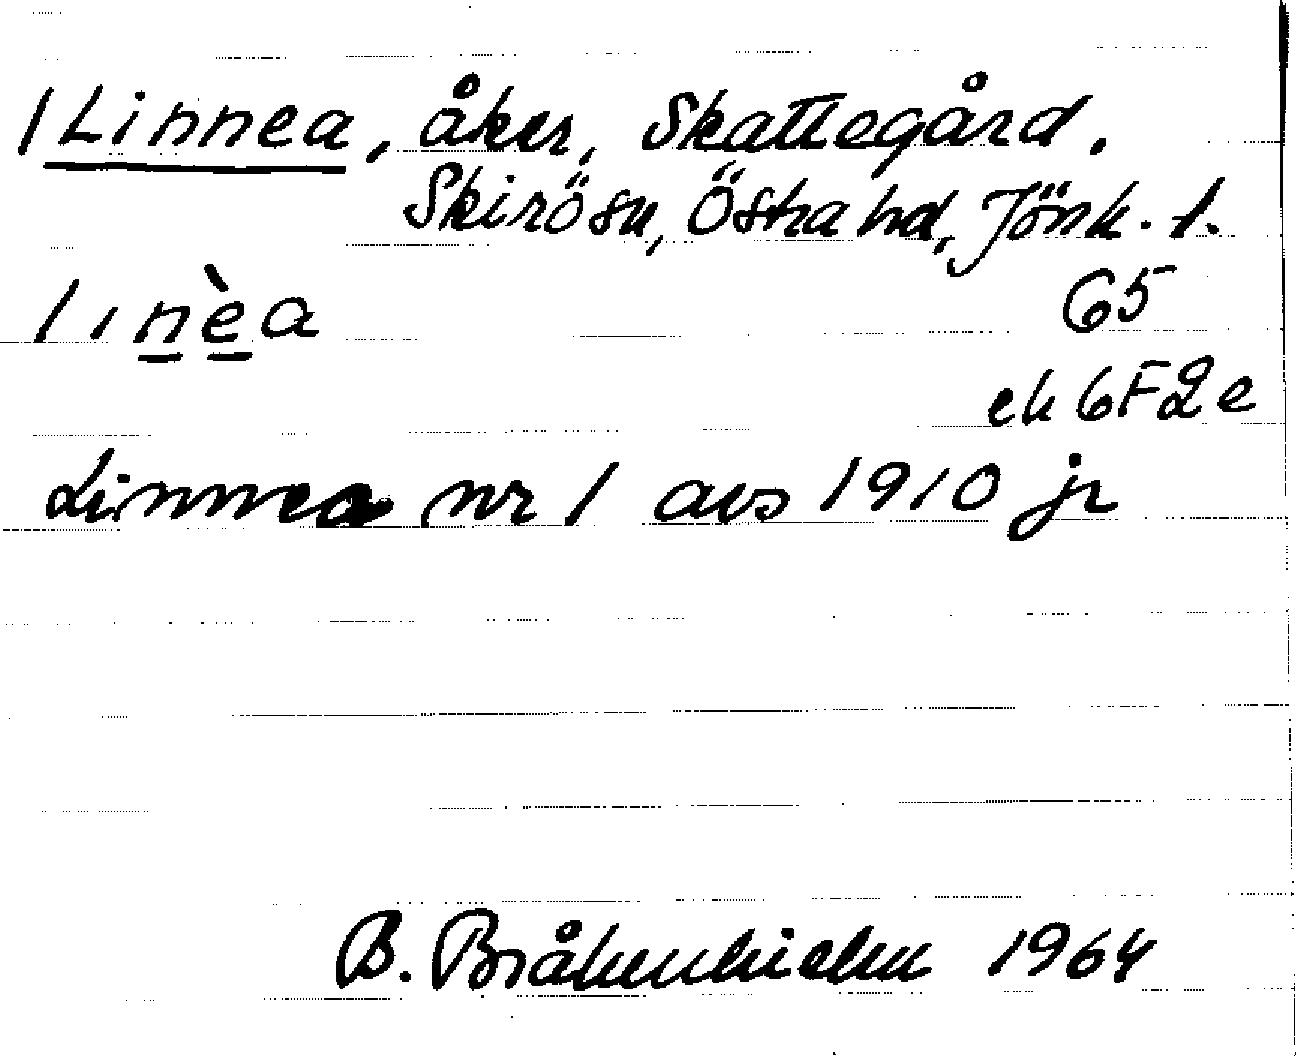 1 Linnea, åker, Skattegård.
Skirö sn, Östra hd, Jönk. l.
linèa
65
ek 6F2e
Linnea nr 1 avs 1910 jr
B. Bråkenhielm 1964